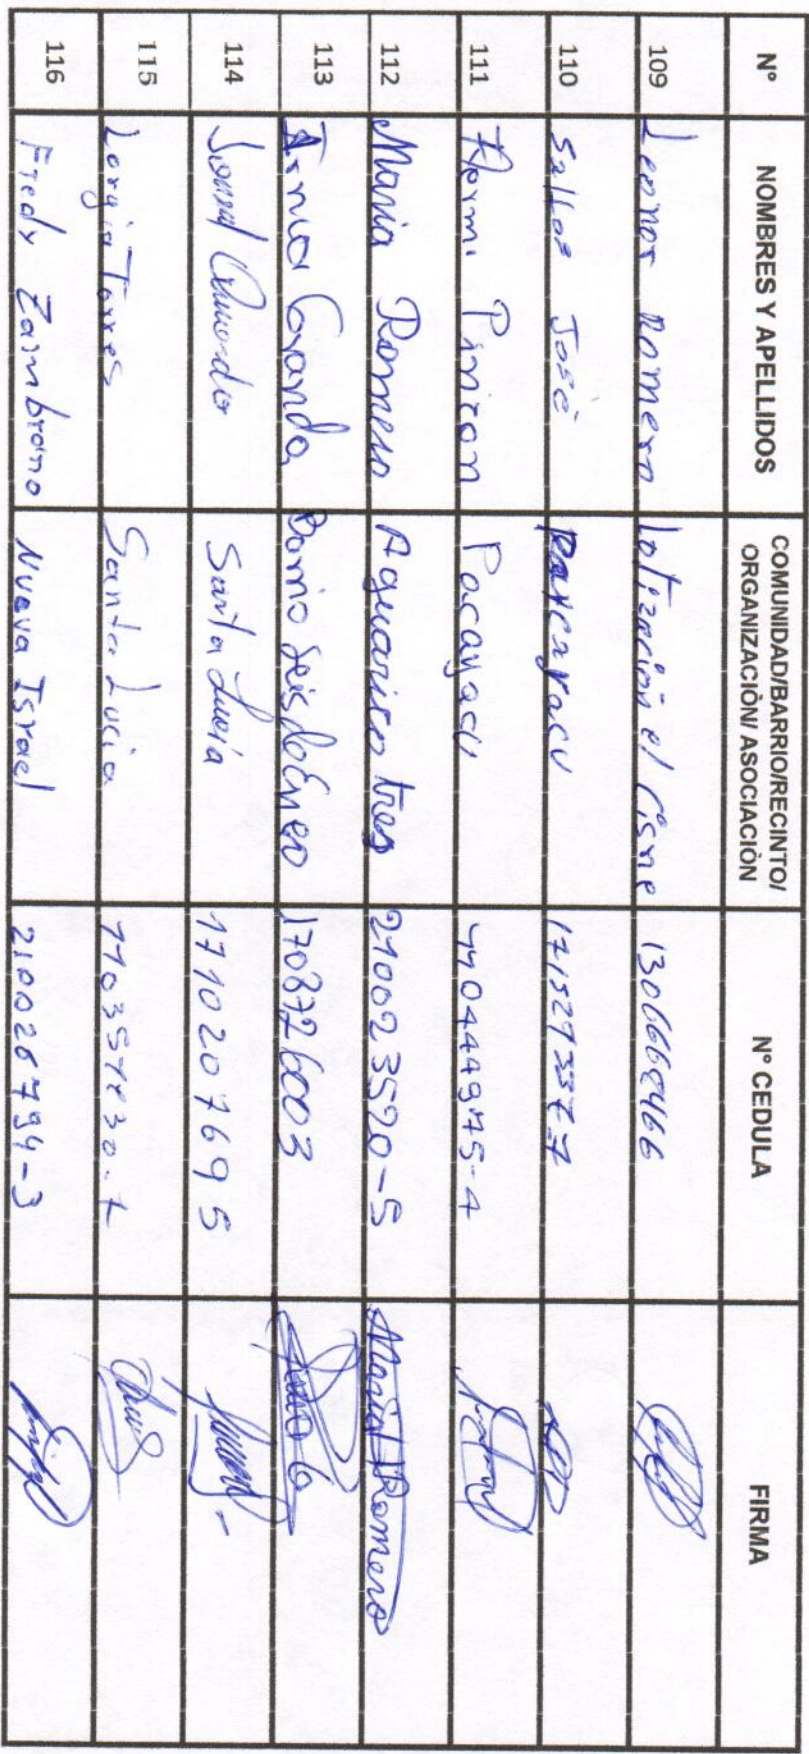 N° NOMBRES Y APELLIDOS COMUNIDAD/BARRIO/RECINTO/ ORGANIZACIÒN/ ASOCIACIÒN N° CEDULA FIRMA
109 Leonor Romero lotización el Cisne 1306668466
110 Sallos José Pacayacu
111 Hermi Pinzon Pacayacu 110444975-4
112 Maria Romero Aguarico tres 210023520-5 Maria Romero
113 Irma Granda Barrio seis de Enero 1708726003
114 Santa Lucia 1710207695
115 Lorgia Torres Santa Lucia
116 Fredy Zambrano Nueva Israel 210028794-3